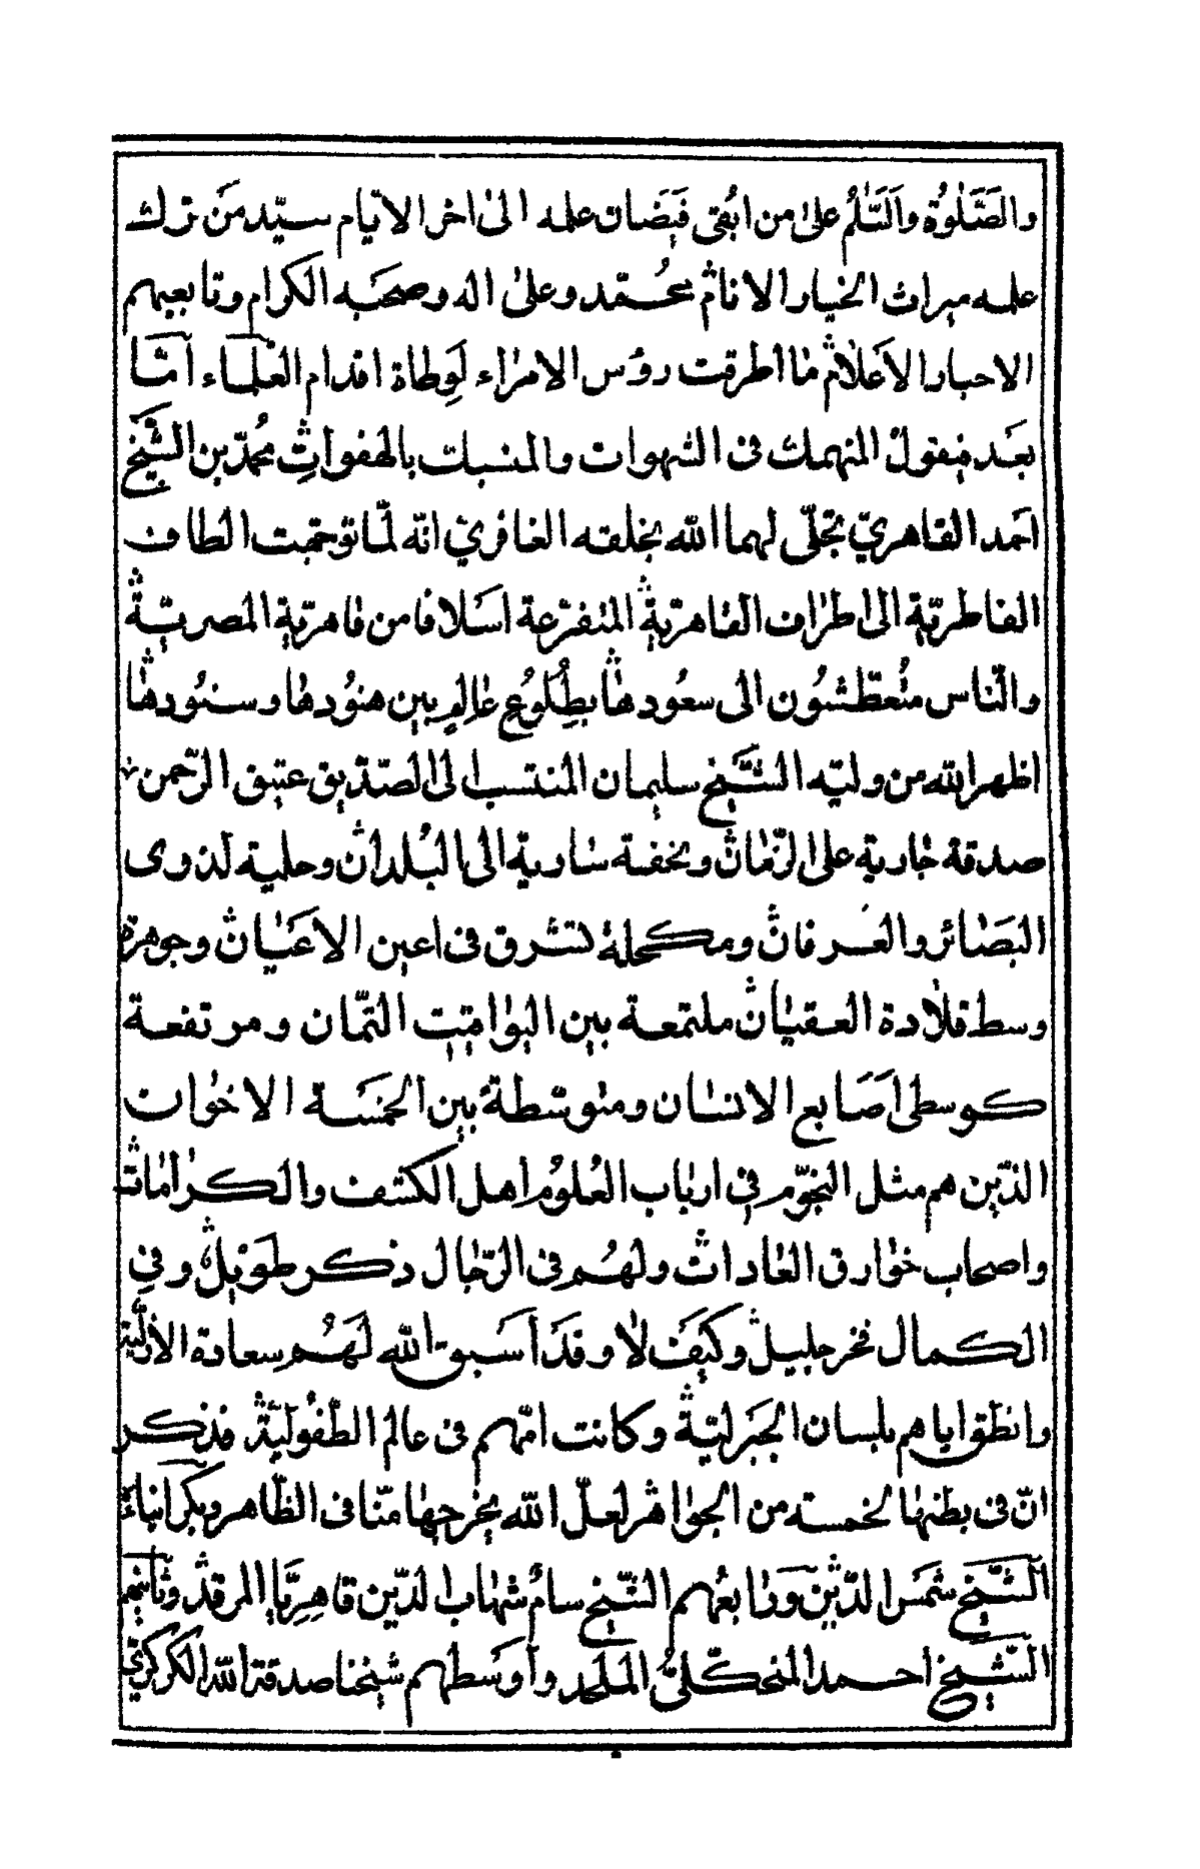 والصَّلٰوة والسَّلٰم على من ابقى فيضان علمه الى اخر الايّام سيّد من ترك
علمه ميراث الخيار الانام محمّد وعلىٰ اله وصحبه الكرام وتابعيهم
الاحبار الاعلام ما اطرقت رؤس الامراء لوطاة اقدام العلماء امّا
بعد فيقول المنهمك فى الشهوات والمنسبك بالهفوات محمّد بن الشّيخ
احمد القاهريّ تجلّى لهما الله بخلقه الغافريّ انّه لمّا توجّهت الطاف
الفاطريّة الى اطراف القاهريّة المتفرّعة اسلافا من قاهريّة المصريّة
والنّاس متعطّشون الى سعودها بطلوع عالم بين هنودها وسنودها
اظهر الله من وليّه الشّيخ سليمان المنتسب الى الصّدّيق عتيق الرّحمن
صدقة جارية على الزّمان وتحفة سارية الى البلدان وحلية لذوى
البصائر والعرفان ومكحلة لتشرق فى اعين الاعيان وجوهرة
وسط قلادة العقيان ملتمعة بين اليواقيت الثمان ومرتفعة
كوسطى اصابع الانسان ومتوسّطة بين الخمسة الاخوات
الذّين هم مثل النجوّم فى ارباب العلوم اهل الكشف والكرامات
واصحاب خوارق العادات ولهم فى الرّجال ذكر طويل وفى
الكمال فخر جليل وكيف لا وقد اسبق الله لهم سعادة الازليّة
وانطق اياهم بلسان الجبرليّة وكانت امّهم فى عالم الطّفوليّة فذكر
انّ فى بطنها لخمسة من الجواهر لعلّ الله يخرجها منّا فى الظّاهر وبكر ابناءه
الشّيخ شمس الدّين ورابعهم الشّيخ سام شهاب الدّين قاهريّا المرقد وثانيهم
الشّيخ احمد المنحكليّ الملحد واوسطهم شيخنا صدقة الله الكركريّ